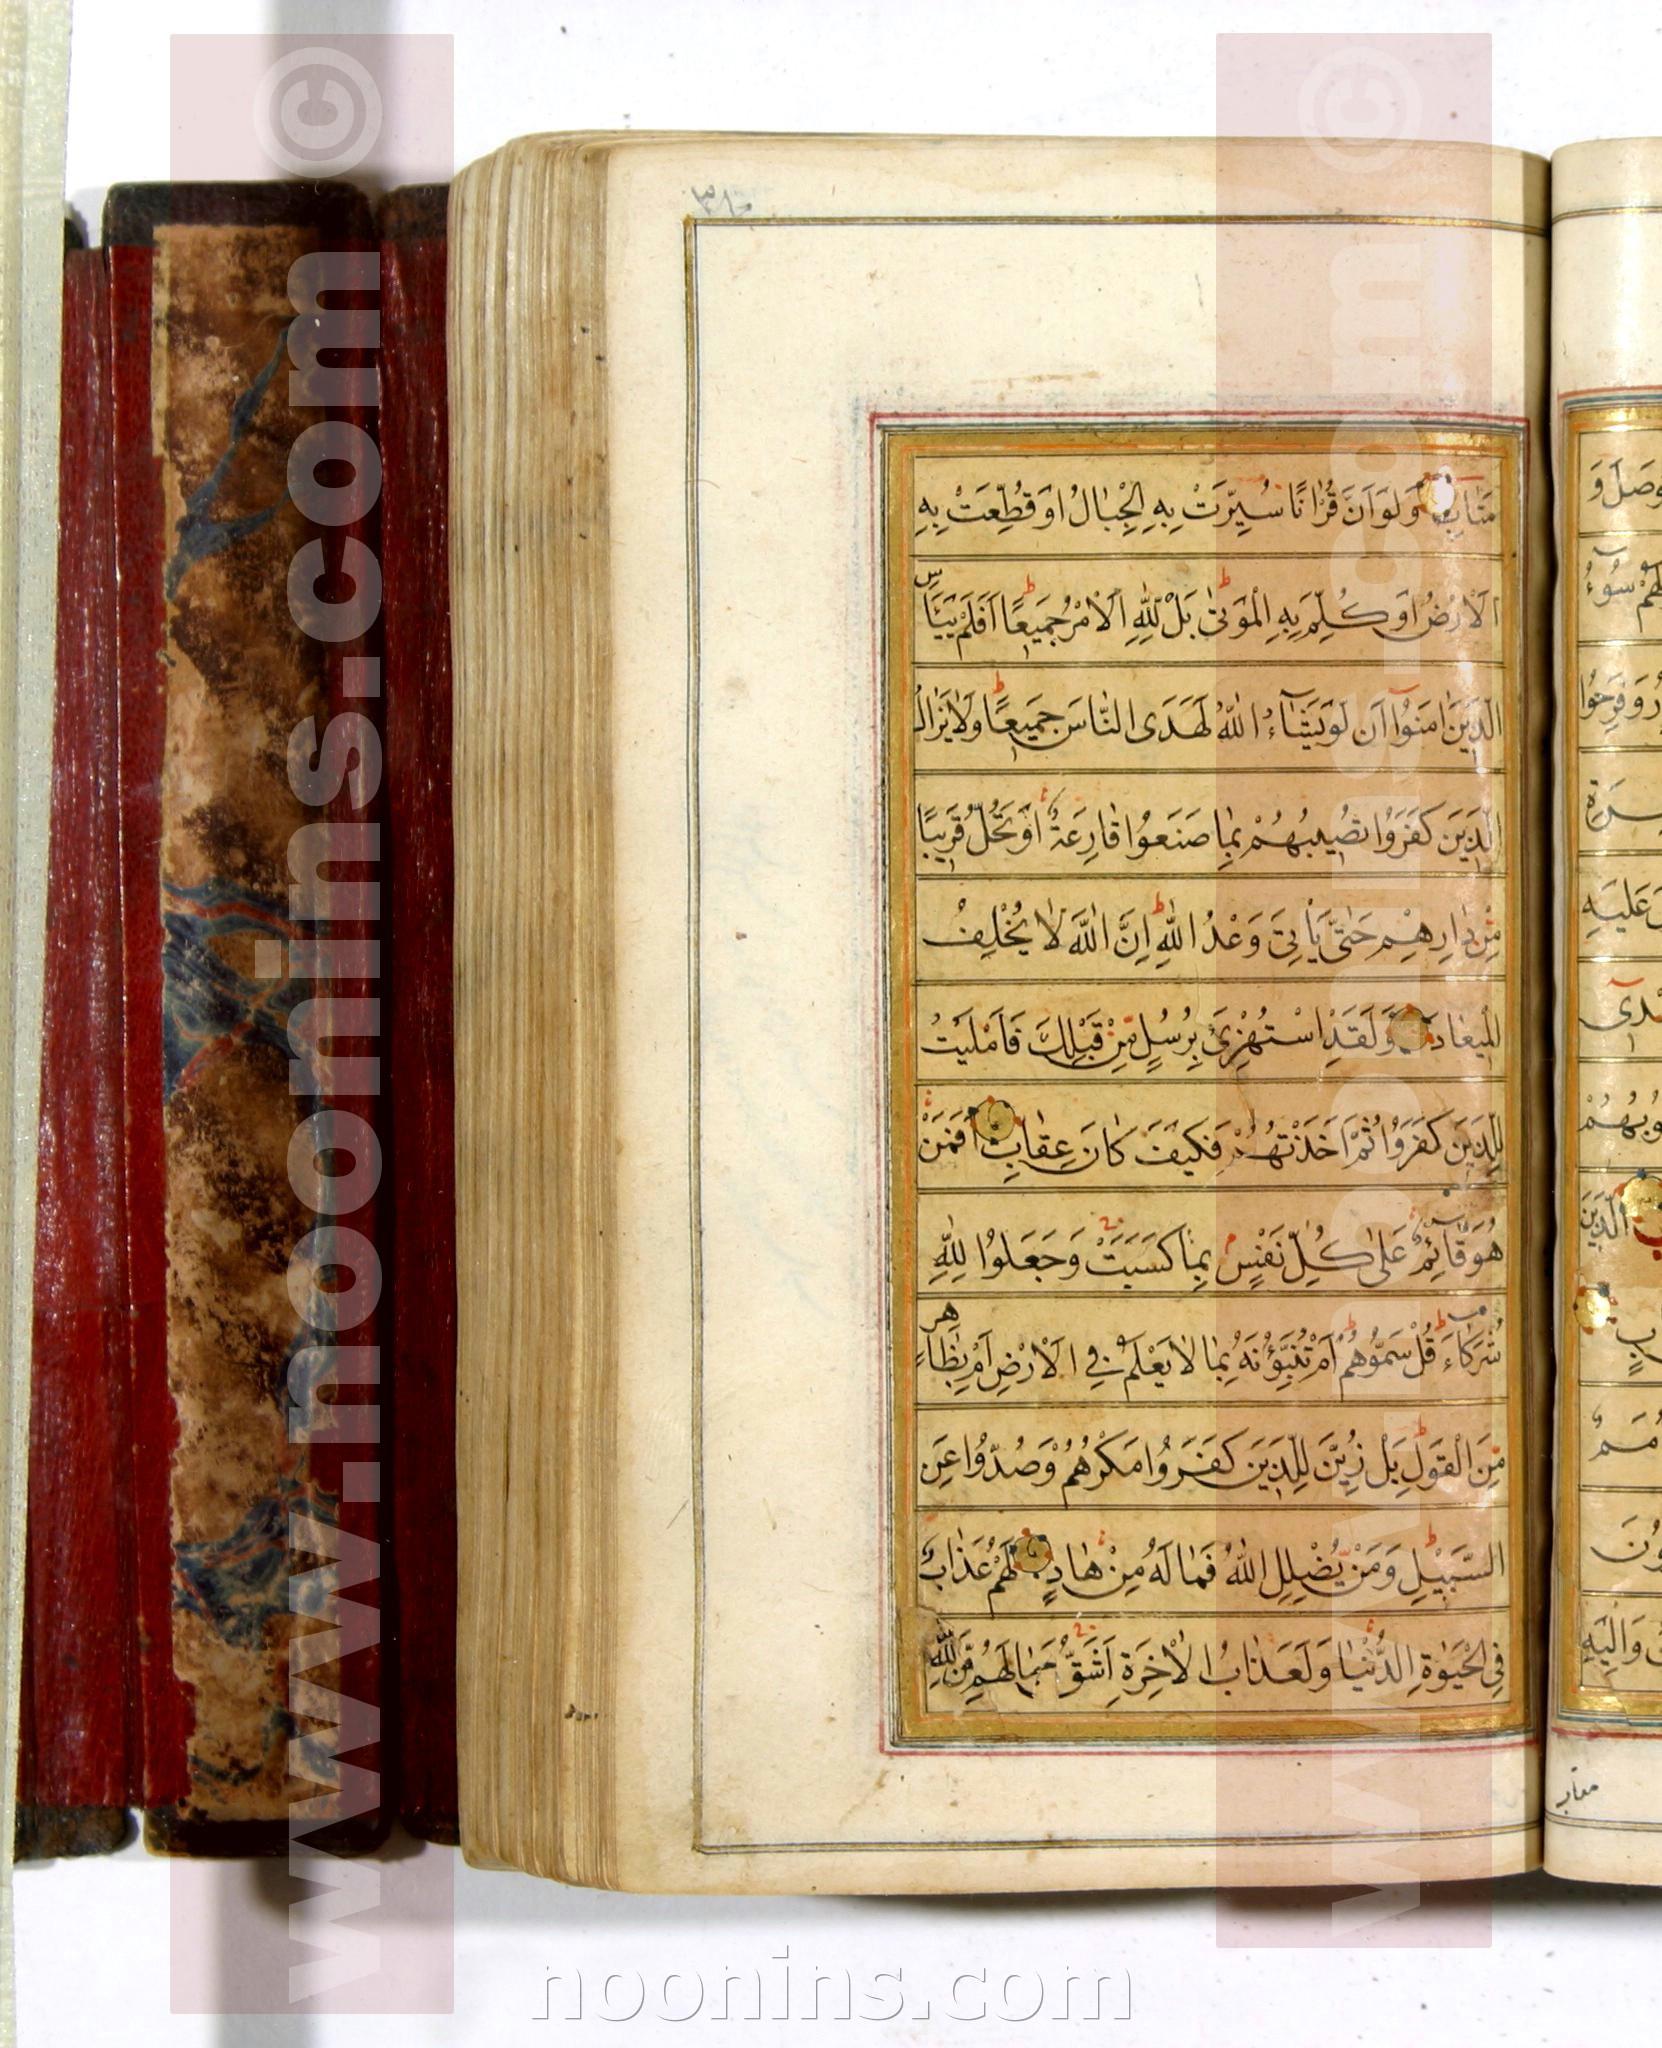 مَتَابِ وَلَوْ اَنَّ قُرْاٰنًا سُيِّرَتْ بِهِ الْجِبَالُ اَوْ قُطِّعَتْ بِهِ
الْاَرْضُ اَوْ كُلِّمَ بِهِ الْمَوْتٰى بَلْ لِلّٰهِ الْاَمْرُ جَمِيْعًا اَفَلَمْ يَيْـَٔسِ
الَّذِيْنَ اٰمَنُوْٓا اَنْ لَوْ يَشَٓاءُ اللّٰهُ لَهَدَى النَّاسَ جَمِيْعًا وَلَا يَزَالُ
الَّذِيْنَ كَفَرُوْا تُصِيْبُهُمْ بِمَا صَنَعُوْا قَارِعَةٌ اَوْ تَحُلُّ قَرِيْبًا
مِنْ دَارِهِمْ حَتّٰى يَاْتِيَ وَعْدُ اللّٰهِ اِنَّ اللّٰهَ لَا يُخْلِفُ
الْمِيْعَادَ وَلَقَدِ اسْتُهْزِئَ بِرُسُلٍ مِنْ قَبْلِكَ فَاَمْلَيْتُ
لِلَّذِيْنَ كَفَرُوْا ثُمَّ اَخَذْتُهُمْ فَكَيْفَ كَانَ عِقَابِ اَفَمَنْ
هُوَ قَائِمٌ عَلٰى كُلِّ نَفْسٍ بِمَا كَسَبَتْ وَجَعَلُوْا لِلّٰهِ
شُرَكَاءَ قُلْ سَمُّوْهُمْ اَمْ تُنَبِّؤُنَهُ بِمَا لَا يَعْلَمُ فِي الْاَرْضِ اَمْ بِظَاهِرٍ
مِنَ الْقَوْلِ بَلْ زُيِّنَ لِلَّذِيْنَ كَفَرُوْا مَكْرُهُمْ وَصُدُّوْا عَنِ
السَّبِيْلِ وَمَنْ يُضْلِلِ اللّٰهُ فَمَا لَهُ مِنْ هَادٍ لَهُمْ عَذَابٌ
فِي الْحَيٰوةِ الدُّنْيَا وَلَعَذَابُ الْاٰخِرَةِ اَشَقُّ وَمَا لَهُمْ مِنَ اللّٰهِ
وصل و
سوء
وفرحوا
عليه
الذين
واليه
متاب
www.noonins.com ©
www.noonins.com ©
noonins.com